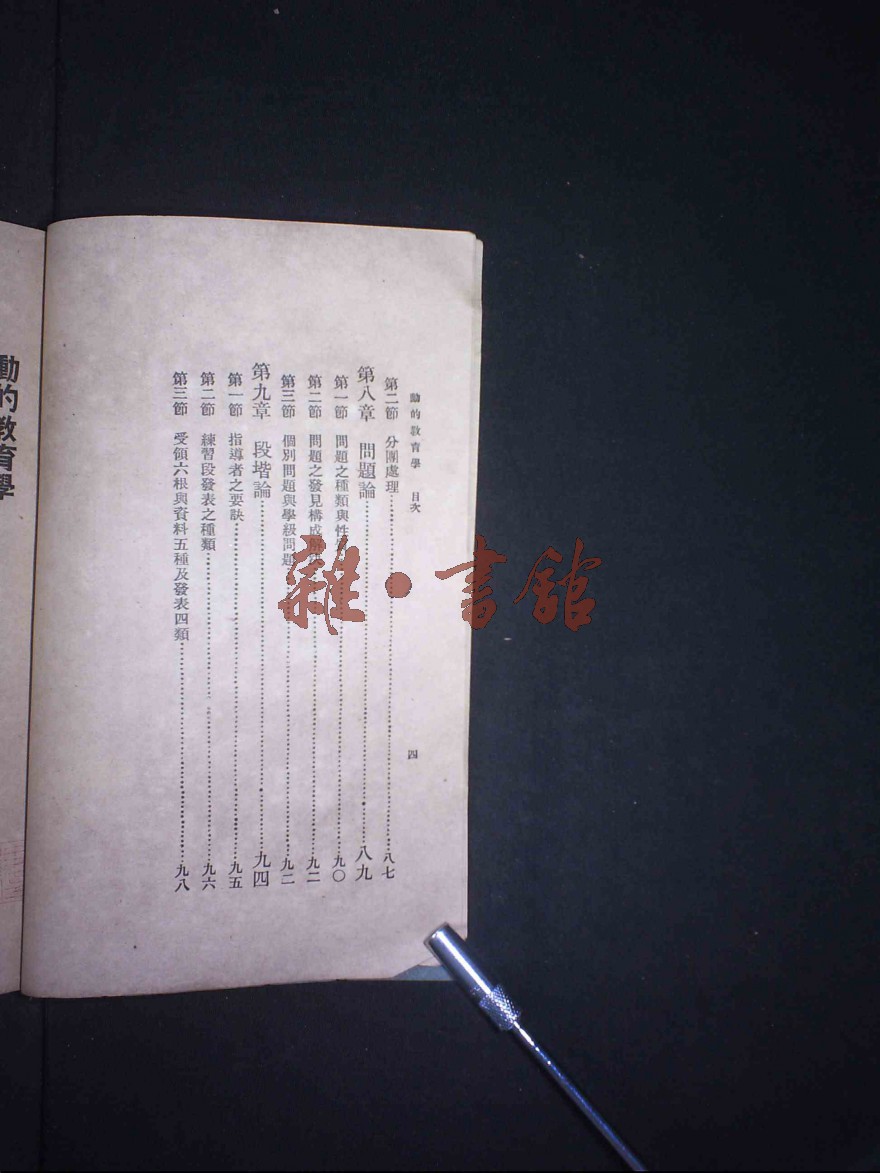 動的教育學 目次 四
第二節 分團處理……八七
第八章 問題論……八九
第一節 問題之種類與性……九〇
第二節 問題之發見構成解……九二
第三節 個別問題與學級問題……九二
第九章 段堦論……九四
第一節 指導者之要訣……九五
第二節 練習段發表之種類……九六
第三節 受領六根與資料五種及發表四類……九八
動的教育學
雜·書館